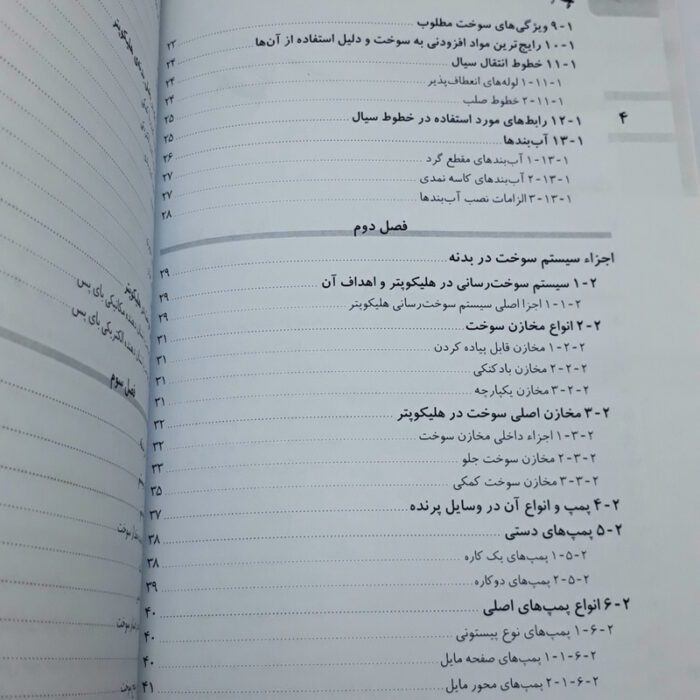 ۱-۹ ویژگی‌های سوخت مطلوب
۱-۱۰ رایج‌ترین مواد افزودنی به سوخت و دلیل استفاده از آن‌ها ۲۳
۱-۱۱ خطوط انتقال سیال ۲۴
۱-۱۱-۱ لوله‌های انعطاف‌پذیر ۲۴
۱-۱۱-۲ خطوط صلب ۲۴
۱-۱۲ رابط‌های مورد استفاده در خطوط سیال ۲۵
۱-۱۳ آب‌بندها ۲۵
۱-۱۳-۱ آب‌بندهای مقطع گرد ۲۶
۱-۱۳-۲ آب‌بندهای کاسه نمدی ۲۷
۱-۱۳-۳ الزامات نصب آب‌بندها ۲۷
۲۸
۴
فصل دوم
اجزاء سیستم سوخت در بدنه ۲۹
۲-۱ سیستم سوخت‌رسانی در هلیکوپتر و اهداف آن ۲۹
۲-۱-۱ اجزا اصلی سیستم سوخت‌رسانی هلیکوپتر ۲۹
۲-۲ انواع مخازن سوخت ۳۱
۲-۲-۱ مخازن قابل پیاده کردن ۳۱
۲-۲-۲ مخازن بادکنکی ۳۱
۲-۲-۳ مخازن یکپارچه ۳۱
۲-۳ مخازن اصلی سوخت در هلیکوپتر ۳۲
۲-۳-۱ اجزاء داخلی مخازن سوخت ۳۲
۲-۳-۲ مخازن سوخت جلو ۳۳
۲-۳-۳ مخازن سوخت کمکی ۳۵
۲-۴ پمپ و انواع آن در وسایل پرنده ۳۷
۲-۵ پمپ‌های دستی ۳۸
۲-۵-۱ پمپ‌های یک کاره ۳۸
۲-۵-۲ پمپ‌های دوکاره ۳۹
۲-۶ انواع پمپ‌های اصلی ۴۰
۲-۶-۱ پمپ‌های نوع پیستونی ۴۰
۲-۶-۱-۱ پمپ‌های صفحه مایل ۴۰
۲-۶-۱-۲ پمپ‌های محور مایل ۴۱
هلیکوپتر
هلیکوپتر
مکانیکی بای پس
الکتریکی بای پس
فصل سوم
سوخت
سوخت